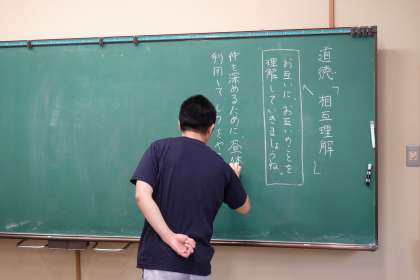 道徳「相互理解」
お互いに、お互いのことを
理解していきましょうね。
仲を深めるために、昼休
利用して